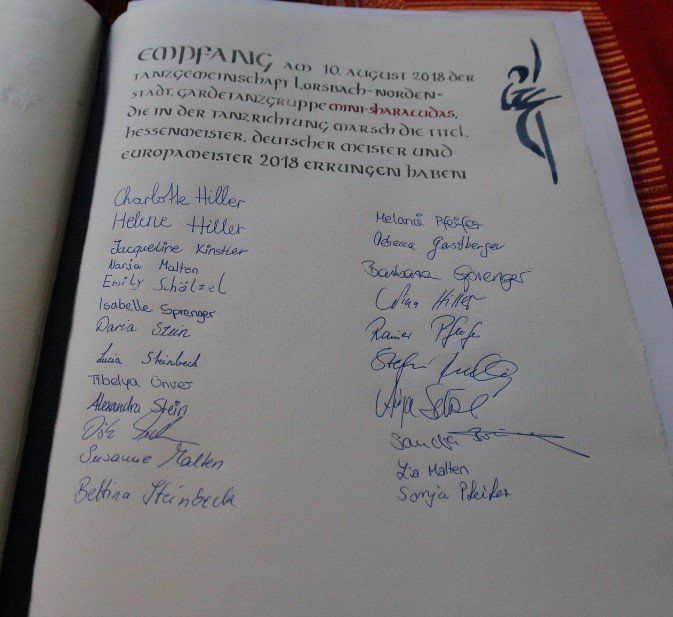 EMPFANG AM 10. AUGUST 2018 DER
TANZGEMEINSCHAFT LORSBACH-NORDEN-
STADT, GARDETANZGRUPPE MINI-SHARALUDAS,
DIE IN DER TANZRICHTUNG MARSCH DIE TITEL
HESSENMEISTER, DEUTSCHER MEISTER UND
EUROPAMEISTER 2018 ERRUNGEN HABEN
Charlotte Hiller
Helene Hiller
Jacqueline Künstler
Malten
Emily Schölzel
Isabelle Sprenger
Daria Stein
Lucia Steinbeck
Ünver
Alexandra Stein
Susanne Malten
Bettina Steinbeck
Melanie Pfeifer
Gastberger
Barbara Sprenger
Hiller
Rainer Pfeifer
Stefan
Sandra
Lia Malten
Sonja Pfeifer